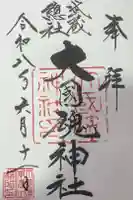 奉拝
武蔵
總社
大國魂神社
令和八年六月十一日